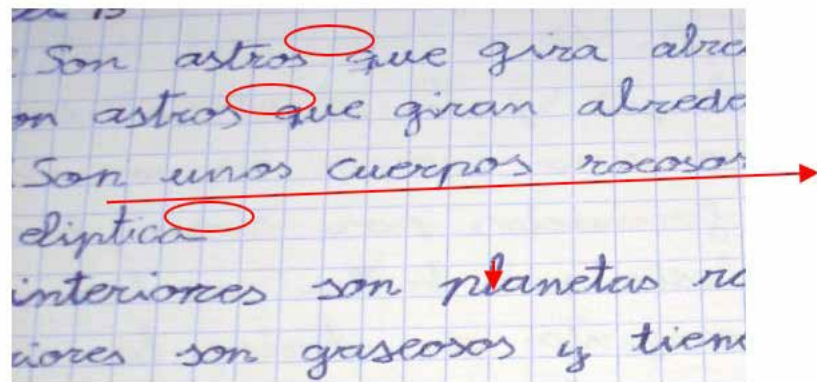 Son astros que gira alre
on astros que giran alrede
Son unos cuerpos rocosos
eliptica
interiores son planetas ro
riores son gaseosos y tien